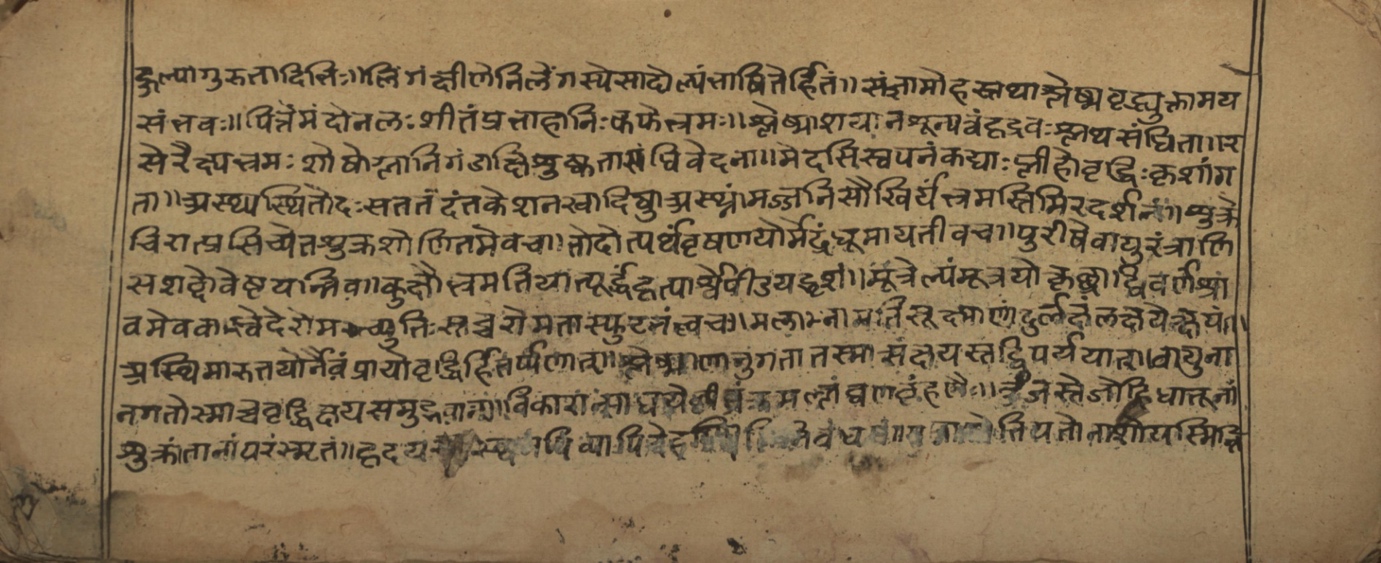 ङ्गल्पागुरुतादिभिः॥लिंगं क्षीणेनिलेंगस्येसादोल्पंभाषितेर्हितं॥ संज्ञामोहस्तथाश्लेष्मवृद्ध्युक्तामय
संभवः॥पित्तेमंदोनलः शीतंप्रभाहानिःकफेभ्रमः॥श्लेष्माशयानशून्यत्वंहृद्रवः श्लथसंधिता॥र
सेरौक्ष्यभ्रमः शोषोग्लानिगंडाक्षिशुष्कतासंधिवेदना॥मेदसिस्वपनंकट्याः प्लीहोवृद्धिः कृशांग
ता॥अस्थ्यस्थितोदः सततंदंतकेशनखादिषु॥अस्थ्नांमज्जनिसौषिर्यंभ्रमस्तिमिरदर्शनं॥शुक्रे
चिरात्प्रसिच्येतशुक्रशोणितमेवचा॥तोदोत्पर्थंवृषणयोर्मेढ्रंधूमायतीवच॥पुरीषेवायुरंत्राणि
सशब्दोवेष्टयन्निव॥कुक्षौभ्रमतियात्यूर्द्ध्वंहृत्पार्श्वेपीडयद्भृशं॥मूत्रेल्पंमूत्रयेत्कृच्छ्राद्विवर्णंश्रा
वमेववा॥स्वेदेरोमच्युतिः स्तब्धरोमतास्फुटनंत्वचा॥मलानामतिसूक्ष्माणांदुर्लक्षंलक्षयेत्क्षयं॥
अस्थिमारुतयोर्नैवंप्रायोवृद्धिर्हितर्पणात्॥श्लेष्मणानुगतातस्मासंक्षयस्तद्विपर्ययात्॥वायुना
नुगतोस्माच्चवृद्धिक्षयसमुद्भवान्॥विकारान्साधयेच्छीघ्रं लंघनबृंहणैः॥ओजस्तेजोहिधातूनां
शुक्रांतानांपरंस्मृतं॥हृदय व्यापिदेह नाशोयस्मि